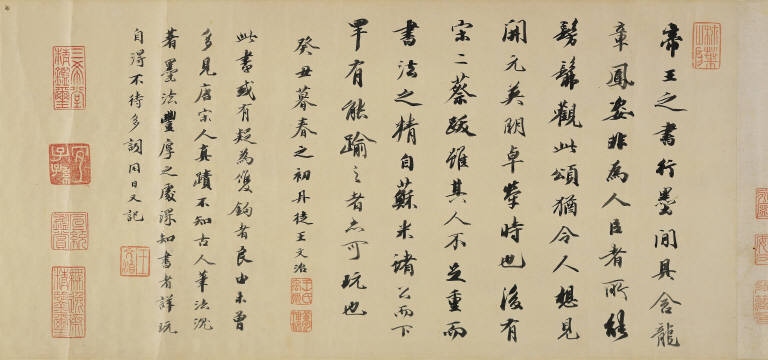 帝王之書行墨間具含龍
章鳳姿非為人臣者所能
髣髴觀此頌猶令人想見
開元英明卓犖時也後有
宋二蔡跋雖其人不足重而
書法之精自蘇米諸公而下
罕有能踰之者亦可玩也
癸丑暮春之初丹徒王文治
此書或有疑為雙鉤者良由未曾
多見唐宋人真蹟不知古人筆法沉
著墨法豐厚之處深知書者詳玩
自得不待多詞同日又記
王文治
三希堂精鑑璽
宜子孫
宣統鑑賞
無逸齋精鑑璽